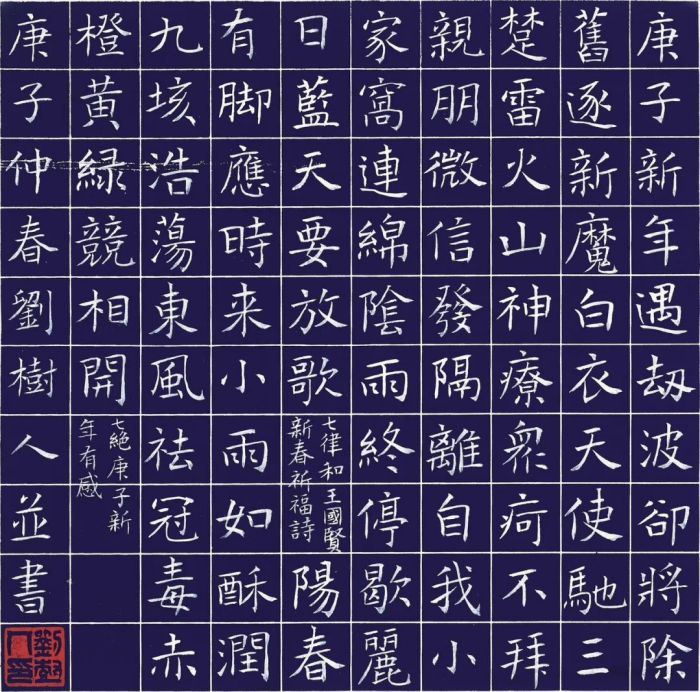 庚子新年遇劫波卻將除
舊逐新魔白衣天使馳三
楚雷火山神療衆疴不拜
親朋微信發隔離自我小
家窩連綿陰雨終停歇麗
日藍天要放歌
七律和王國賢
新春祈福詩
陽春
有脚應時来小雨如酥潤
九垓浩蕩東風祛冠毒赤
橙黃綠競相開
七絕庚子新
年有感
庚子仲春劉樹人並書
劉樹人印